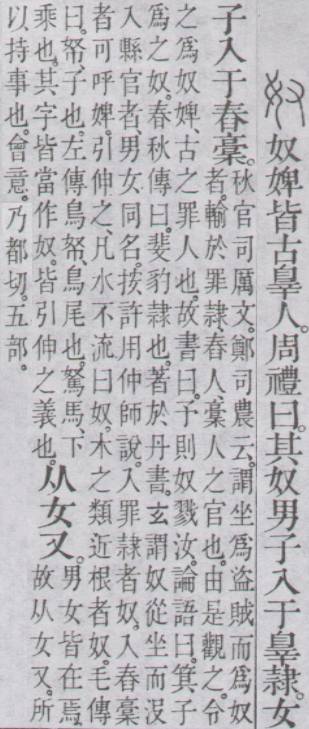 奴 奴婢皆古辠人。周禮曰。其奴男子入于辠隸。女
子入于舂藁。
秋官司厲文。鄭司農云。謂坐爲盜賊而爲奴
者。輸於罪隸、舂人、藁人之官也。由是觀之。今
之爲奴婢、古之罪人也。故書曰。予則奴戮汝。論語曰。箕子
爲之奴。春秋傳曰。斐豹隸也。著於丹書。玄謂奴從坐而沒
入縣官者、男女同名。按許用仲師說。入罪隸者奴。入舂藁
者可呼婢。引伸之、凡水不流曰奴。木之類近根者奴。毛傳
曰。帑、子也。左傳鳥帑、鳥尾也。駑馬、下
乘也。其字皆當作奴。皆引伸之義也。
从女又。
男女皆在焉。
故从女又。所
以持事也。會意。乃都切。五部。